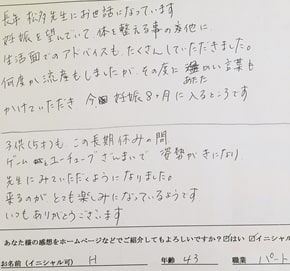 長年 松崎先生にお世話になっています
妊娠を望んでいて 体を整える事の他に、
生活面でのアドバイスも、たくさんしていただきました。
何度か流産もしましたが、その度に あたたかい言葉も
かけていただき 今 妊娠8ヶ月に入るところです
子供(5才)も、この長期休みの間
ゲーム ユーチューブざんまいで 姿勢がきになり
先生にみていただくようになりました。
来るのがとても楽しみになっているようです
いつもありがとうございます
あなた様の感想をホームページなどでご紹介してもよろしいですか?☑はい ☑イニシャル
お名前(イニシャル可) H 年齢 43 職業 パート